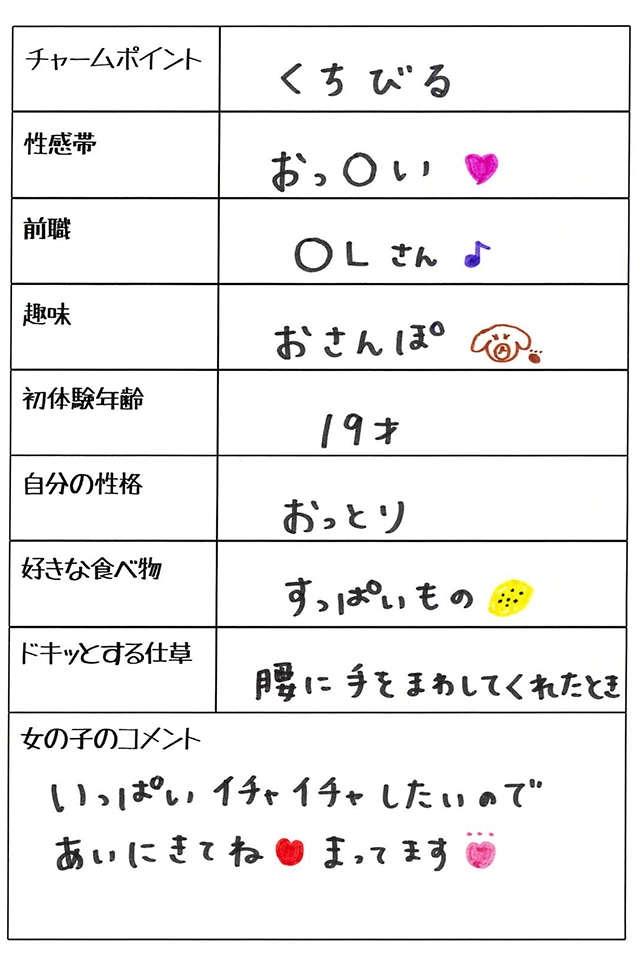 チャームポイント くちびる
性感帯 おっ〇い
前職 〇Lさん
趣味 おさんぽ
初体験年齢 19才
自分の性格 おっとり
好きな食べ物 すっぱいもの
ドキッとする仕草 腰に手をまわしてくれたとき
女の子のコメント
いっぱいイチャイチャしたいので
あいにきてね まってます